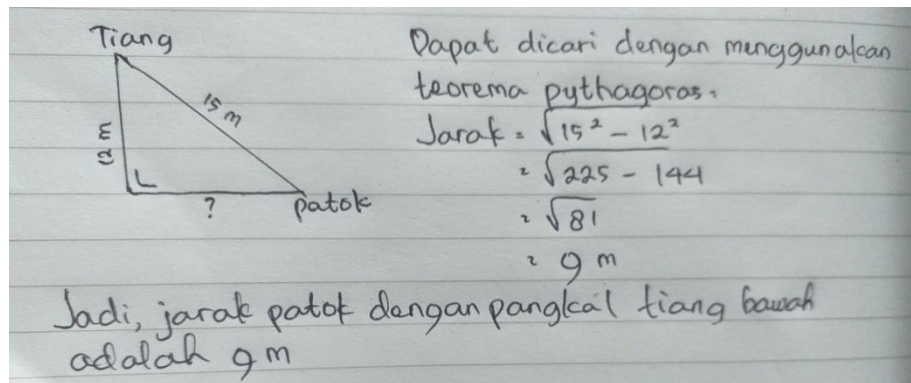 Tiang
15 m
12 m
?
patok
Dapat dicari dengan menggunakan
teorema pythagoras.
Jarak = √15² - 12²
= √225 - 144
= √81
= 9 m
Jadi, jarak patok dengan pangkal tiang bawah
adalah 9 m